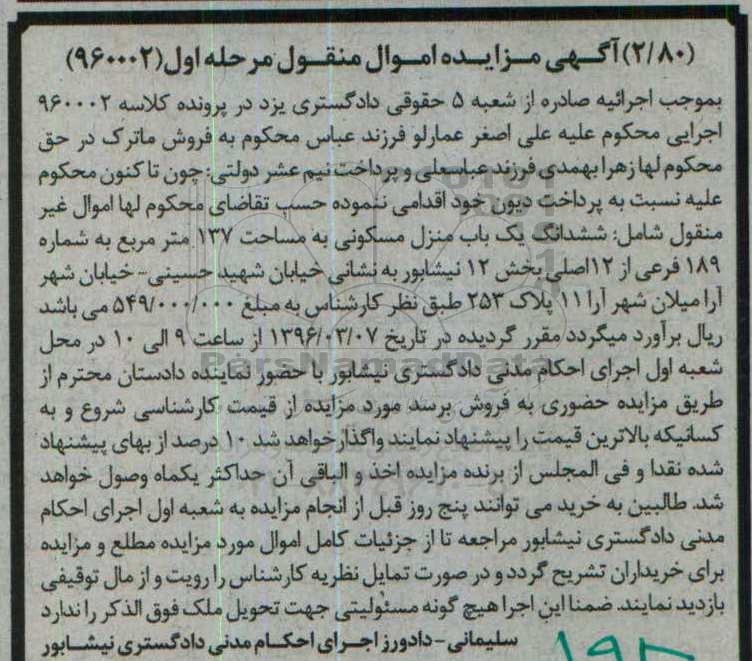 (۲/۸۰) آگهی مزایده اموال منقول مرحله اول (۹۶۰۰۰۲)
بموجب اجرائیه صادره از شعبه ۵ حقوقی دادگستری یزد در پرونده کلاسه ۹۶۰۰۰۲
اجرایی محکوم علیه علی اصغر عمارلو فرزند عباس محکوم به فروش ماترک در حق
محکوم لها زهرا بهمدی فرزند عباسعلی و پرداخت نیم عشر دولتی؛ چون تا کنون محکوم
علیه نسبت به پرداخت دیون خود اقدامی ننموده حسب تقاضای محکوم لها اموال غیر
منقول شامل: ششدانگ یک باب منزل مسکونی به مساحت ۱۳۷ متر مربع به شماره
۱۸۹ فرعی از ۱۲اصلی بخش ۱۲ نیشابور به نشانی خیابان شهید حسینی- خیابان شهر
آرا میلان شهر آرا ۱۱ پلاک ۲۵۳ طبق نظر کارشناس به مبلغ ۵۴۹/۰۰۰/۰۰۰ می باشد
ریال برآورد میگردد مقرر گردیده در تاریخ ۱۳۹۶/۰۳/۰۷ از ساعت ۹ الی ۱۰ در محل
شعبه اول اجرای احکام مدنی دادگستری نیشابور با حضور نماینده دادستان محترم از
طریق مزایده حضوری به فروش برسد مورد مزایده از قیمت کارشناسی شروع و به
کسانیکه بالاترین قیمت را پیشنهاد نمایند واگذار خواهد شد ۱۰ درصد از بهای پیشنهاد
شده نقدا و فی المجلس از برنده مزایده اخذ و الباقی آن حداکثر یکماه وصول خواهد
شد. طالبین به خرید می توانند پنج روز قبل از انجام مزایده به شعبه اول اجرای احکام
مدنی دادگستری نیشابور مراجعه تا از جزئیات کامل اموال مورد مزایده مطلع و مزایده
برای خریداران تشریح گردد و در صورت تمایل نظریه کارشناس را رویت و از مال توقیفی
بازدید نمایند. ضمنا این اجرا هیچ گونه مسئولیتی جهت تحویل ملک فوق الذکر را ندارد
سلیمانی- دادورز اجرای احکام مدنی دادگستری نیشابور
ParsNamadData